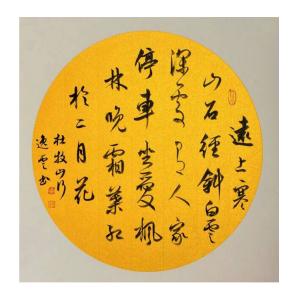 遠上寒
山石徑斜白雲
深處有人家
停車坐愛楓
林晚霜葉紅
於二月花
杜牧山行
逸雲书